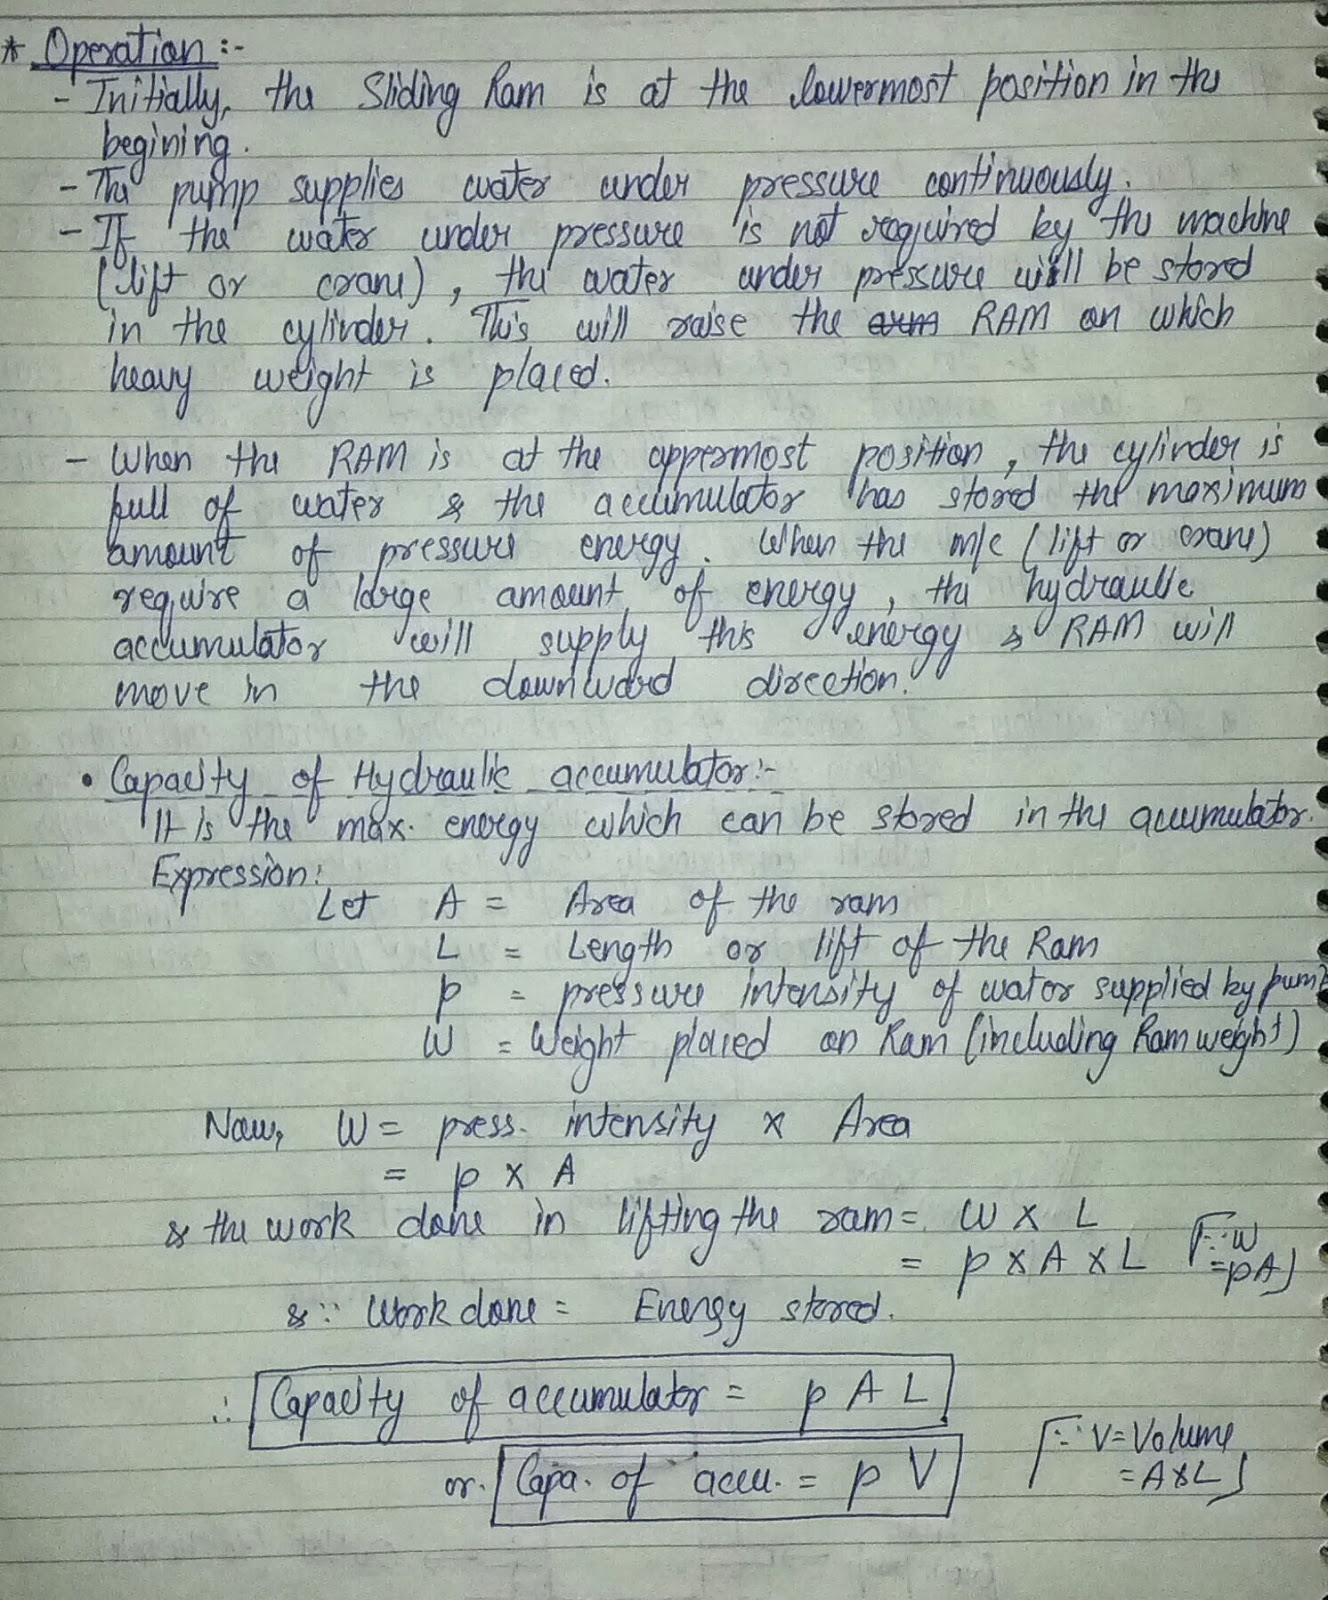 * Operation :-
- Initially, the Sliding Ram is at the lowermost position in the
begining.
- The pump supplies water under pressure continuously.
- If the water under pressure is not required by the machine
(lift or crane), the water under pressure will be stored
in the cylinder. This will raise the arm RAM on which
heavy weight is placed.
- When the RAM is at the uppermost position, the cylinder is
full of water & the accumulator has stored the maximum
amount of pressure energy. When the m/c (lift or crane)
require a large amount of energy, the hydraulic
accumulator will supply this energy & RAM will
move in the downward direction.
• Capacity of Hydraulic accumulator:-
It is the max. energy which can be stored in the accumulator.
Expression:
Let A = Area of the ram
L = Length or lift of the Ram
p = pressure intensity of water supplied by pump
W = Weight placed on Ram (including Ram weight)
Now, W = press. intensity x Area
= p x A
& the work done in lifting the ram = W x L
= p x A x L [∵ W
= pA]
& ∵ Work done = Energy stored.
∴ Capacity of accumulator = p A L
or. Capa. of accu. = p V [∵ V = Volume
= A x L]